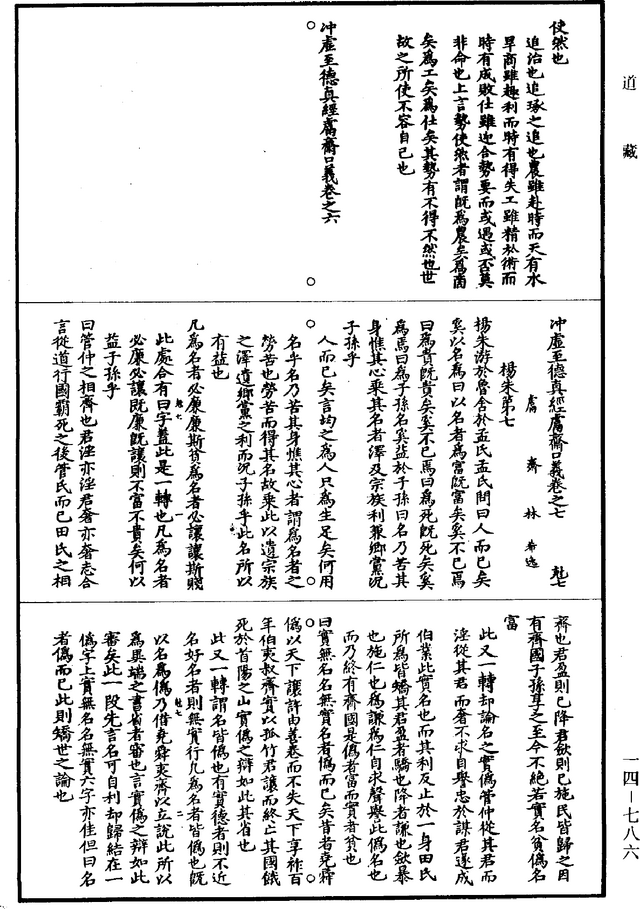 道藏
使然也
追治也追琢之追也農雖赴時而天有水
旱商雖趣利而時有得失工雖精於術而
時有成敗仕雖迎合勢要而或遇或否莫
非命也上言勢使然者謂既為農矣為商
矣為工矣為仕矣其勢有不得不然也世
故之所使不容自已也
冲虛至德真經鬳齋口義卷之六
冲虛至德真經鬳齋口義卷之七
鬳齋林希逸
楊朱第七
楊朱游於魯舍於孟氏孟氏問曰人而已矣
奚以名為曰以名者為富既富矣奚不已焉
曰為貴既貴矣奚不已焉曰為死既死矣奚
為焉曰為子孫名奚益於子孫曰名乃苦其
身憔其心乘其名者澤及宗族利兼鄉黨況
子孫乎
人而已矣言均之為人只為生足矣何用
名乎名乃苦其身憔其心者謂為名者之
勞苦也勞苦而得其名故乘此以遺宗族
之澤遺鄉黨之利而況子孫乎此名所以
有益也
凡為名者必廉廉斯貧為名者必讓讓斯賤
此處合有曰字蓋此是一轉也凡為名者
必廉必讓既廉既讓則不富不貴矣何以
益子孫乎
曰管仲之相齊也君淫亦淫君奢亦奢志合
言從道行國霸死之後管氏而已田氏之相
齊也君盈則己降君歛則己施民皆歸之因
有齊國子孫享之至今不絕若實名貧偽名
富
此又一轉却論名之實偽管仲從其君而
淫從其君而奢不求自譽忠於謀君遂成
伯業此實名也而其利反止於一身田氏
所為皆矯其君盈者驕也降者謙也歛暴
也施仁也為謙為仁自求聲譽此偽名也
而乃終有齊國是偽者富而實者貧也
曰實無名名無實名者偽而已矣昔者堯舜
偽以天下讓許由善卷而不失天下享祚百
年伯夷叔齊實以孤竹君讓而終亡其國餓
死於首陽之山實偽之辯如此其省也
此又一轉謂名皆偽也有實德者則不近
名好名者則無實行凡為名者皆偽也既
以名為偽乃借堯舜夷齊以立說此所以
為異端之書省者審也言實偽之辯如此
審矣此一段先言名可自利却歸結在一
偽字上實無名名無實六字亦佳但曰名
者偽而已此則矯世之論也
一四—七八六